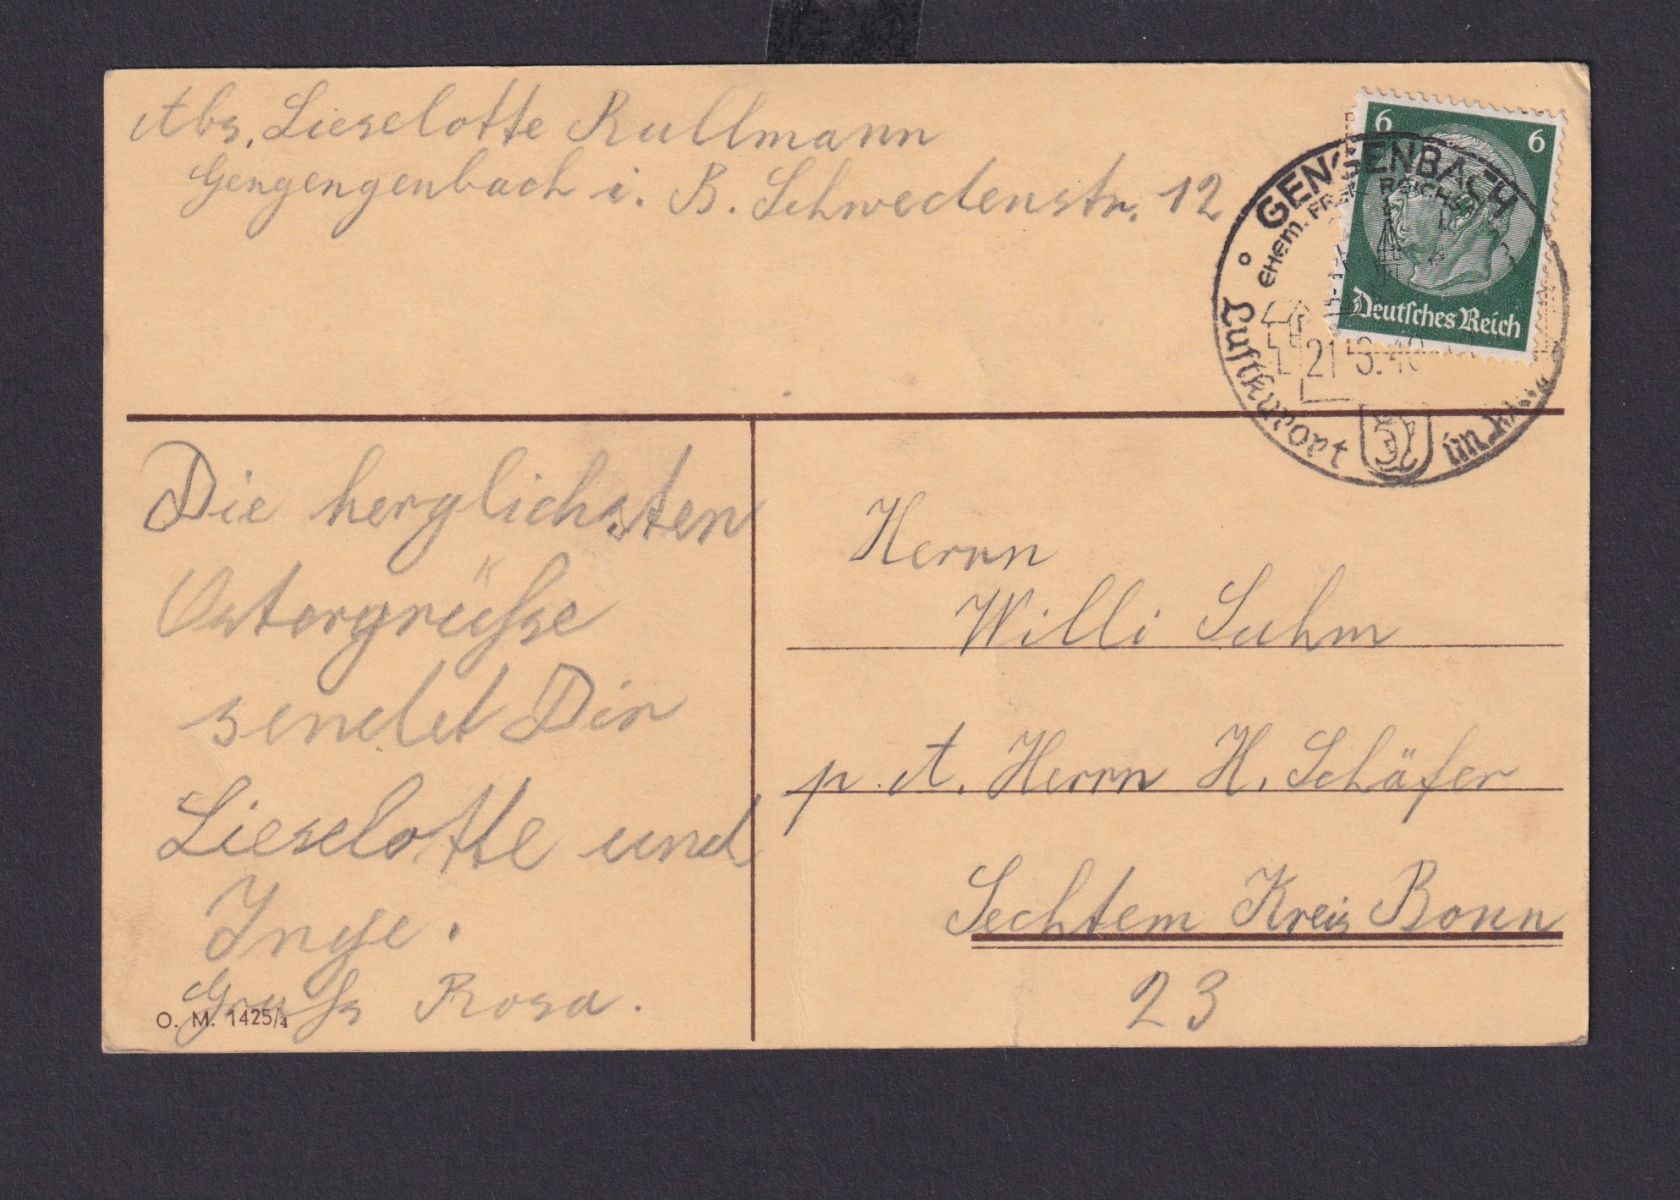 Abs. Lieselotte Rullmann
Gengengenbach i. B. Schwedenstr. 12
6 6
Deutsches Reich
GENGENBACH
EHEM. FREIE REICHS
Luftkurort im
21.3.40
Die herzlichsten
Ostergrüsse
sendet Dir
Lieselotte und
Inge.
Gruss Rosa.
O. M. 1425/4
Herrn
Willi Suhm
p. A. Herrn H. Schäfer
Sechtem Kreis Bonn
23